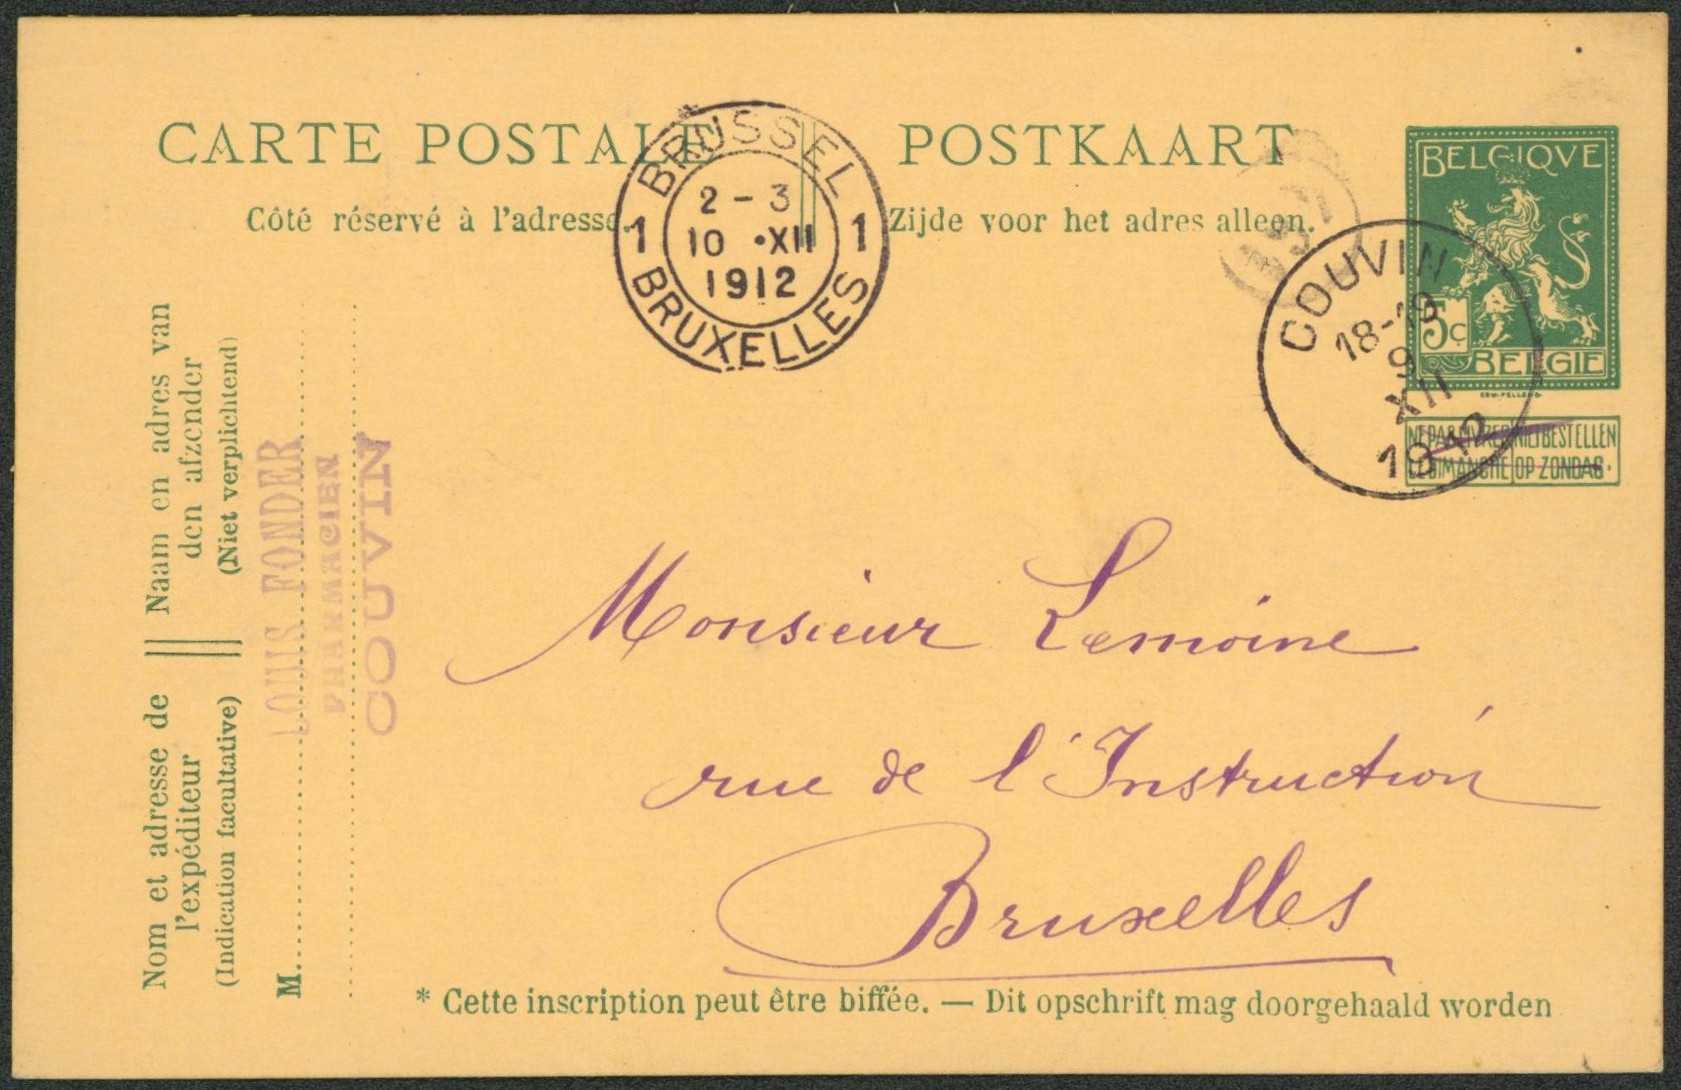 CARTE POSTALE
POSTKAART
Côté réservé à l'adresse.
Zijde voor het adres alleen.
BRUSSEL
1 1
2 - 3
10 •XII
1912
BRUXELLES
BELGIQVE
5c
BELGIE
COUVIN
18-19
9
XII
1912
NE PAS LIVRER NIET BESTELLEN
LE DIMANCHE OP ZONDAG.
Naam en adres van
den afzender
(Niet verplichtend)
Nom et adresse de
l'expéditeur
(Indication facultative)
M.
LOUIS FONDER
PHARMACIEN
COUVIN
Monsieur Lemoine
rue de l'Instruction
Bruxelles
* Cette inscription peut être biffée. — Dit opschrift mag doorgehaald worden